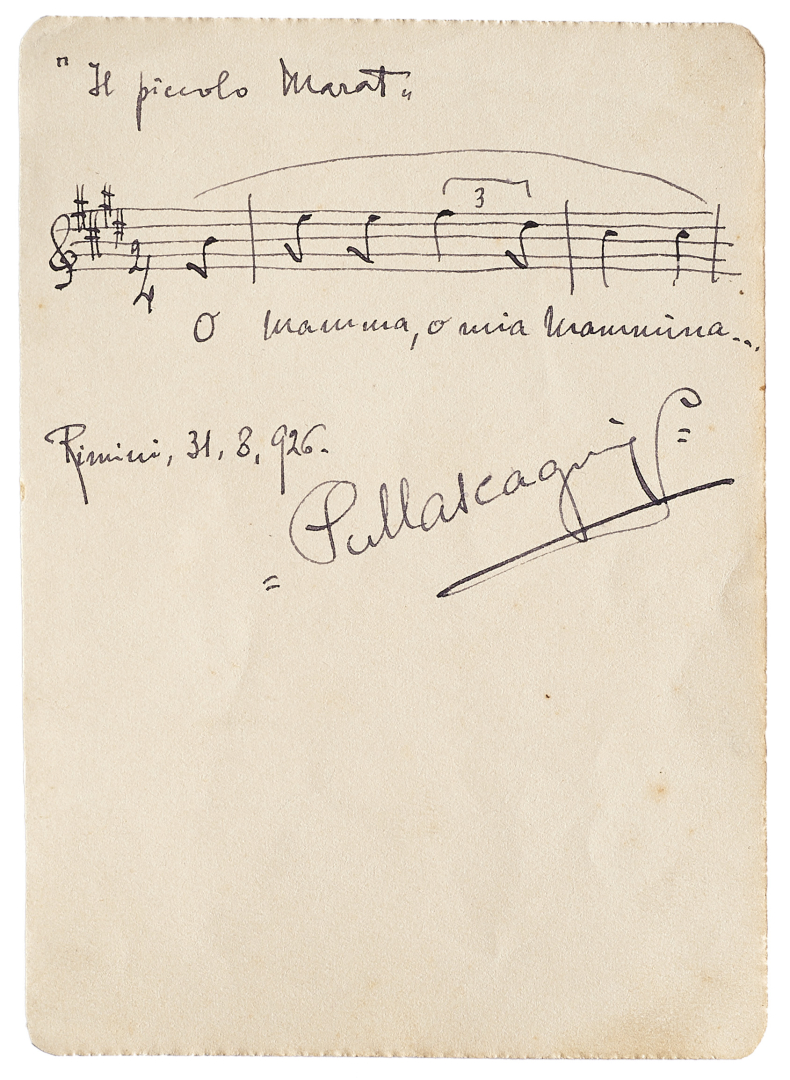 " Il piccolo Marat "
3
2
4
O mamma, o mia mammina...
Rimini, 31, 8, 926.
= PMascagni =